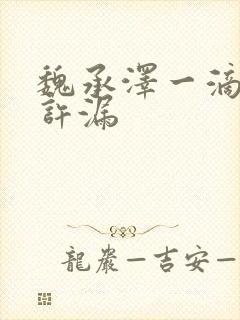 魏承澤一滴
許漏
龍巖—吉安—